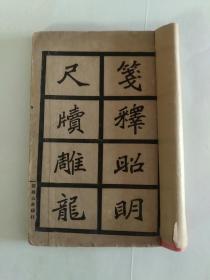 箋釋昭明
尺牘雕龍